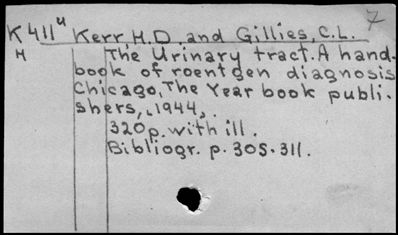 7
K411u Kerr, H.D. and Gillies, C.L.
M The Urinary tract. A hand-
book of roentgen diagnosis
Chicago, The Year book publi-
shers, 1944,.
320p. with ill.
Bibliogr. p. 305-311.